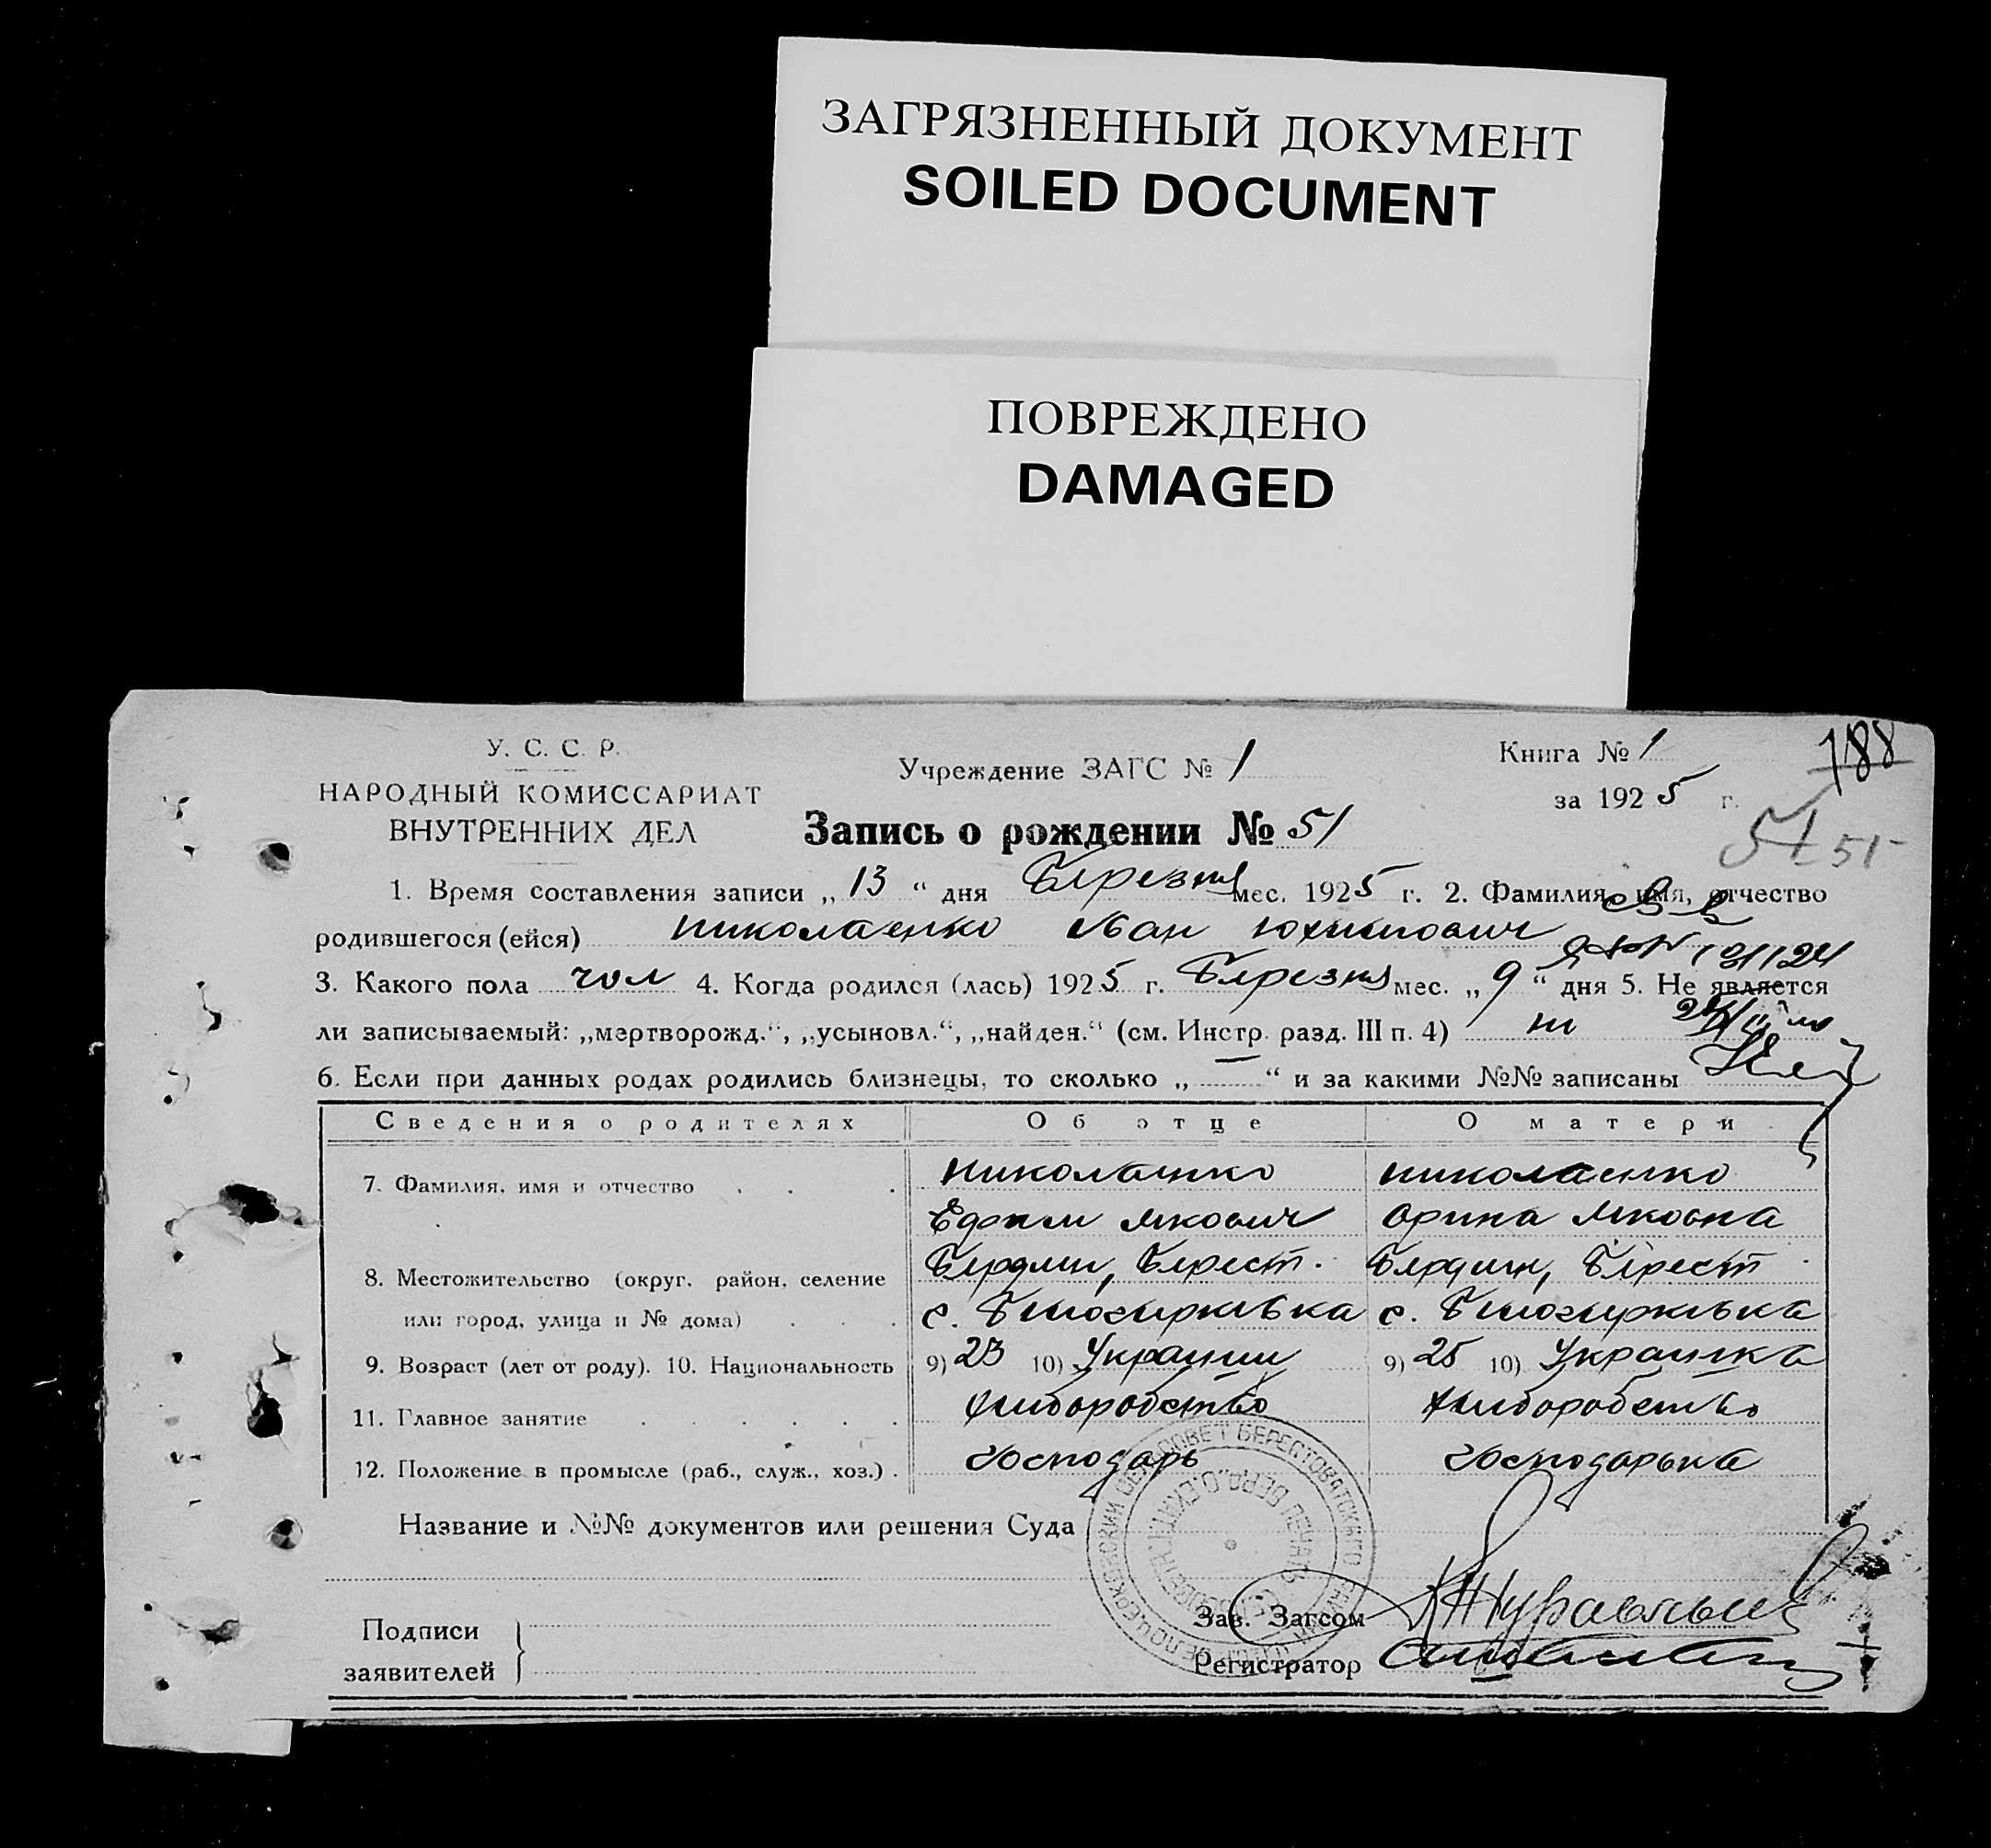 ЗАГРЯЗНЕННЫЙ ДОКУМЕНТ
SOILED DOCUMENT
ПОВРЕЖДЕНО
DAMAGED
У. С. С. Р.
НАРОДНЫЙ КОМИССАРИАТ
ВНУТРЕННИХ ДЕЛ
Учреждение ЗАГС № 1
Книга № 1
188
за 1925 г.
Запись о рождении № 51
51 51
1. Время составления записи „13“ дня Березня мес. 1925 г. 2. Фамилия, имя, отчество
родившегося (ейся) Николаенко Иван Юхимович
3. Какого пола чол 4. Когда родился (лась) 1925 г. Березня мес. „9“ дня 5. Не является
ли записываемый: „мертворожд.“, „усыновл.“, „найден.“ (см. Инстр. разд. III п. 4) ні
6. Если при данных родах родились близнецы, то сколько „—“ и за какими №№ записаны
Сведения о родителях Об отце О матери
7. Фамилия, имя и отчество Николаенко Николаенко
Ефим Якович Орина Яковна
8. Местожительство (округ, район, селение Бердян, Берест. Бердян, Берест
или город, улица и № дома) с. Білоцерківка с. Білоцерківка
9. Возраст (лет от роду). 10. Национальность 9) 23 10) Українец 9) 25 10) Українка
11. Главное занятие хліборобство хліборобство
12. Положение в промысле (раб., служ., хоз.) господарь господарька
Название и №№ документов или решения Суда
Подписи
заявителей
Зав. Загсом
Регистратор